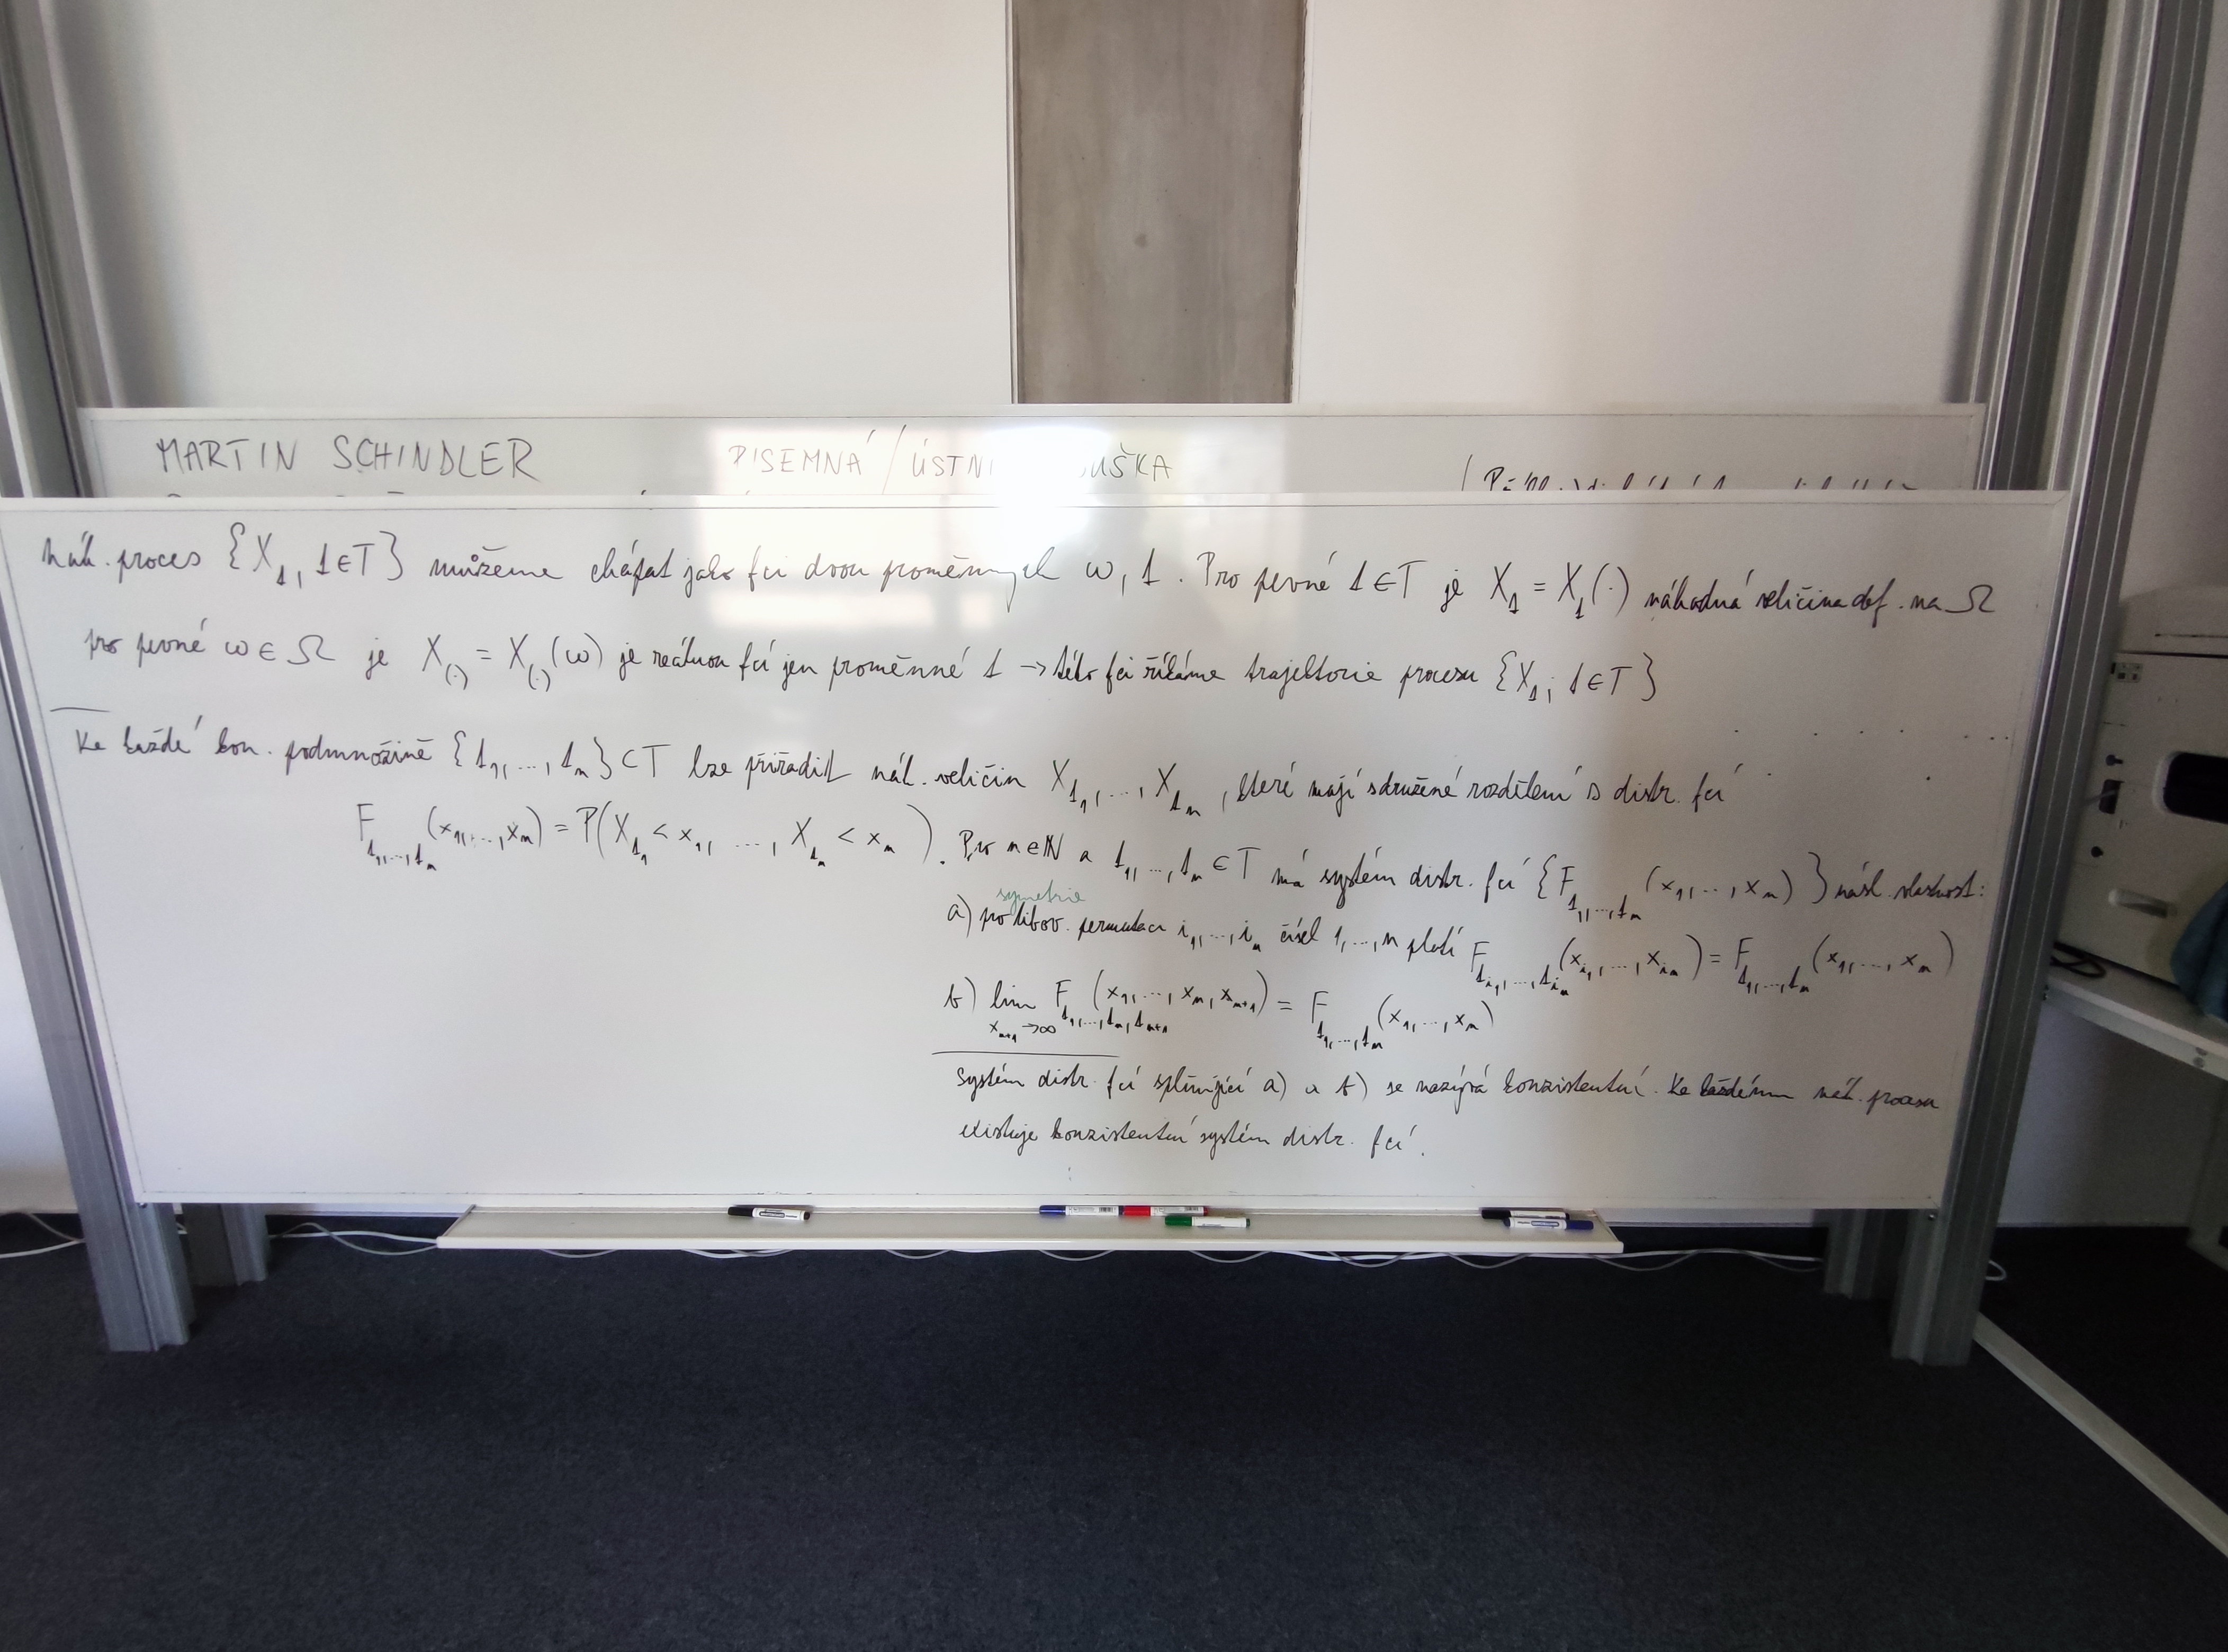 MARTIN SCHINDLER PISEMNÁ / ÚSTNÍ
náh. proces {X_t, t∈T} můžeme chápat jako fci dvou proměnných ω, t. Pro pevné t∈T je X_t = X_t(·) náhodná veličina def. na Ω
pro pevné ω∈Ω je X_(·) = X_(·)(ω) je reálnou fcí jen proměnné t → této fci říkáme trajektorie procesu {X_t; t∈T}
Ke každé kon. podmnožině {t_1,...,t_n}⊂T lze přiřadit náh. veličin X_t_1,...,X_t_n, které mají sdružené rozdělení s distr. fcí
F_t_1,...,t_n (x_1,...,x_n) = P(X_t_1 < x_1, ..., X_t_n < x_n). Pro n∈N a t_1,...,t_n∈T má systém distr. fcí {F_t_1,...,t_n (x_1,...,x_n)} násl. vlastnost:
symetrie
a) pro libov. permutaci i_1,...,i_n čísel 1,...,n platí F_t_i_1,...,t_i_n (x_i_1,...,x_i_n) = F_t_1,...,t_n (x_1,...,x_n)
b) lim x_n+1→∞ F_t_1,...,t_n,t_n+1 (x_1,...,x_n,x_n+1) = F_t_1,...,t_n (x_1,...,x_n)
systém distr. fcí splňující a) a b) se nazývá konzistentní. Ke každému náh. procesu
existuje konzistentní systém distr. fcí.